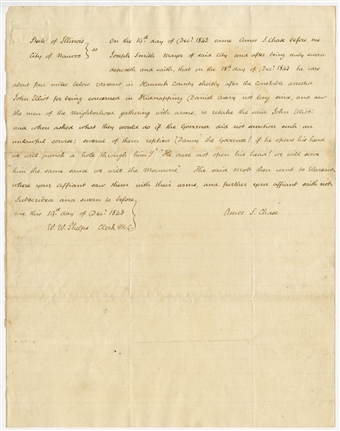 State of Illinois } On the 19th day of Decr. 1843 came Amos S. Chase before me
City of Nauvoo } ss Joseph Smith Mayor of said city and after being duly sworn
deposeth and saith, that on the 18th day of Decr. 1843 he was
about four miles below Warsaw, in Hancock County shortly after the Constable arrested
John Elliot for being concerned in Kidnapping Daniel Avery not long since, and saw
the men of the Neighborhood gathering with arms, to retake the said John Elliot:
and when asked what they would do if the Governor did not sanction such an
unlawful course: several of them replied "Damn the Governor! if he opens his head
we will punch a hole through him!" "He dare not open his head! we will serve
him the same sauce we will the Mormons" The said mob then went to Warsaw,
where your affiant saw them with their arms, and further your affiant saith not.
Subscribed and sworn to before
me this 19th day of Decr. 1843 } Amos S. Chase
W. W. Phelps Clerk M.C.